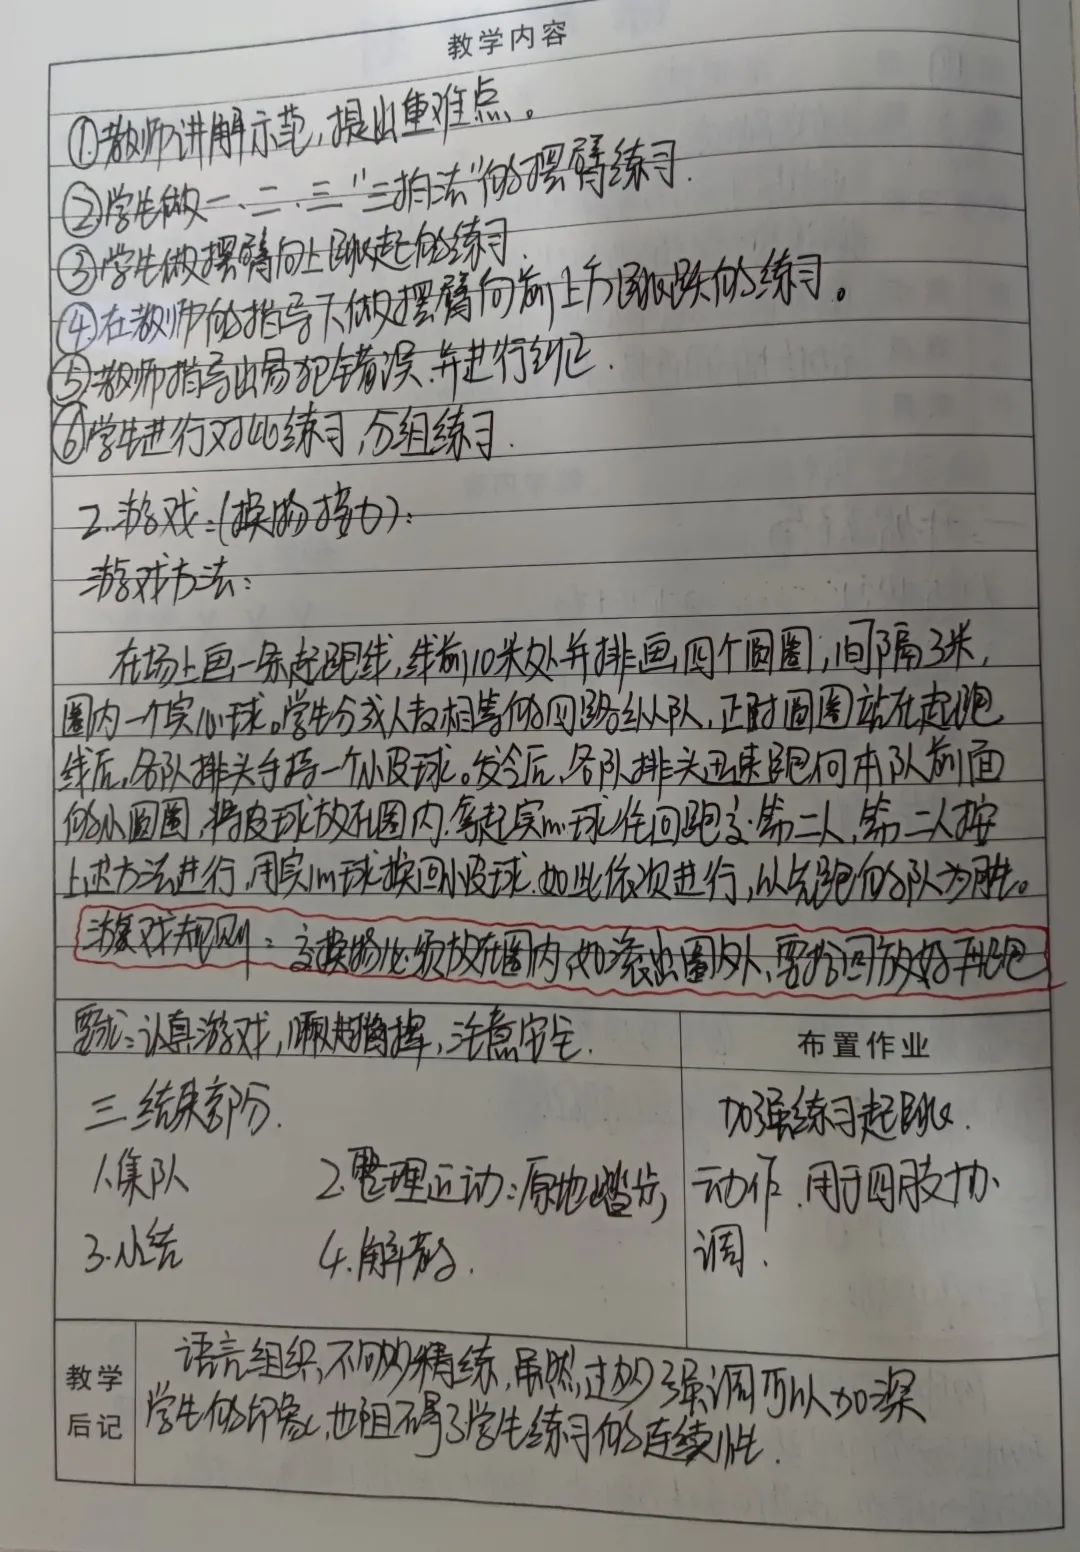 教学内容
①教师讲解示范，提出重难点。
②学生做一、二、三"三拍法"的摆臂练习.
③学生做摆臂向上跳起的练习.
④在教师的指导下做摆臂向前上方跳跃的练习。
⑤教师指导出易犯错误.并进行纠正.
⑥学生进行对比练习,分组练习.
2.游戏:(换物接力):
游戏方法:
在场上画一条起跑线,线前10米处并排画四个圆圈,间隔3米,
圈内一个实心球。学生分成人数相等的四路纵队,正对圆圈站在起跑
线后,各队排头手持一个小皮球。发令后,各队排头迅速跑向本队前面
的小圆圈,将皮球放在圈内.拿起实心球往回跑交第二人,第二人按
上述方法进行,用实心球换回小皮球.如此依次进行,以先跑的队为胜。
游戏规则:交换物必须放在圈内,如滚出圈外,要拾回放好再跑
要求:认真游戏,听从指挥,注意安全.
布置作业
三.结束部分.
加强练习起跳.
1.集队 2.整理运动:原地踏步,
动作.用于四肢协
3.小结 4.解散.
调.
教学
后记
语言组织不够精练,虽然,过多强调可以加深
学生的印象,也阻碍了学生练习的连续性.